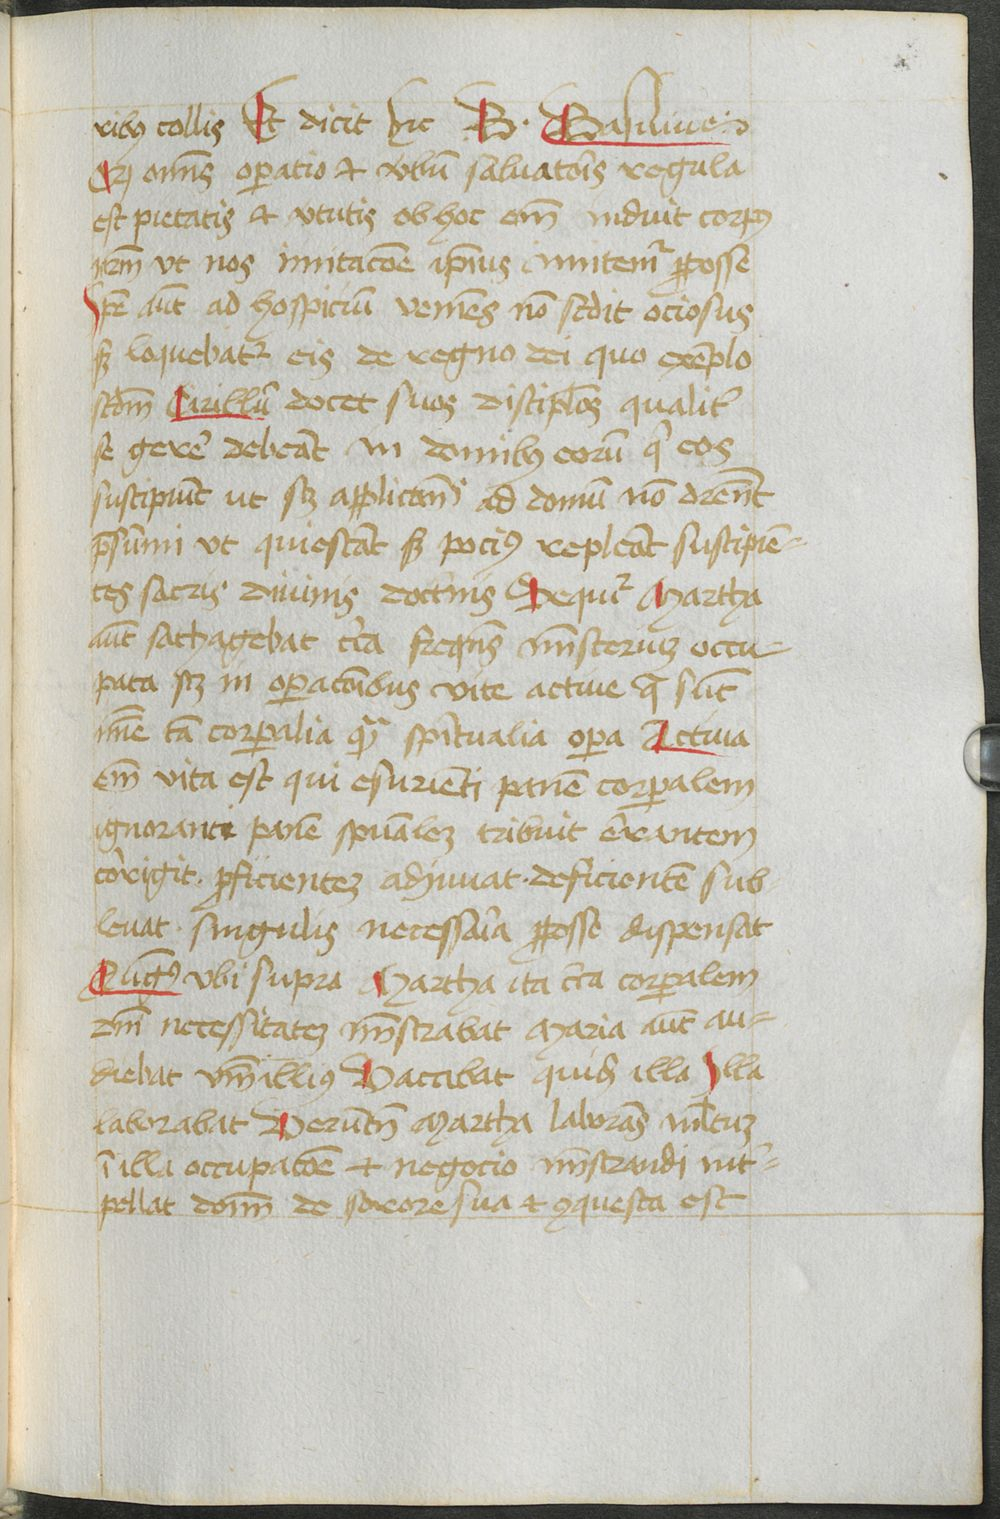 ribꝰ collis Et dicit hic B. Basilius
Qꝫ om̄s oꝑatio ⁊ v̓bū saluatoīs regula
est pietatis ⁊ v̓tutis ob hoc em̄ induit corpꝰ
nr̄m vt nos imitac̄oe ip̄ius imitem᷑ ꝓ posse
Ip̄e aūt ad hospiciū venīes nō sedit ociosus
sꝫ loquebat᷑ eis de regno dei quo exēplo
scdm̄ Cirillū docet suos discip̄los qualit̓
se gere᷑ debeāt in domibꝰ eorū q̓ eos
suscipiūt ut scꝫ applican̄ ad domū nō dr̄ent
p̄sūmi vt quiescāt sꝫ pociꝰ repleāt suscipiē-
tes sacris diuinis doct̓nis Sequit᷑ Martha
aūt sathagebat c̓ca freqn̄s mīsteriuꝫ occu-
pata scꝫ in oꝑac̄onibus vite actiue q̄ sūt
īne tā corꝑalia qᷓ sp̄itualia oꝑa Actiua
em̄ vita est qui esuriēti panē corꝑalem
ignoranti panē sp̄ualeꝫ tribuit errantem
cor̓rigit. ꝓficienteꝫ adiuuat. deficientē sub-
leuat. singulis necessar̓ia ꝓ posse dispensat
Augꝰ vbi supra Martha ita c̓ca corꝑalem
dn̄i necessitateꝫ mīstrabat Maria aūt au-
diebat v̓m illiꝰ Vaccabat quid̓ illa Illa
laborabat Verūtn̄ Martha laborās multuꝫ
ī illa occupac̄oe ⁊ negocio mīstrandi int̓-
pellat dom̄ de sorore sua ⁊ ꝯquesta est